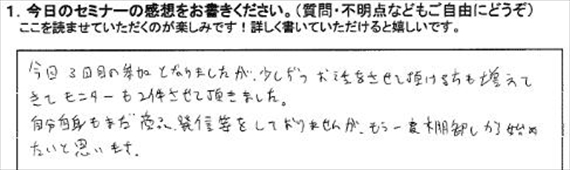 1. 今日のセミナーの感想をお書きください。(質問・不明点などもご自由にどうぞ)
ここを読ませていただくのが楽しみです！詳しく書いていただけると嬉しいです。
今回3回目の参加となりましたが、少しずつお話をさせて頂ける方も増えて
きてモニターも2件させて頂きました。
自分自身もまだ商品、発信等をしておりませんが、もう一度棚卸しから始め
たいと思います。